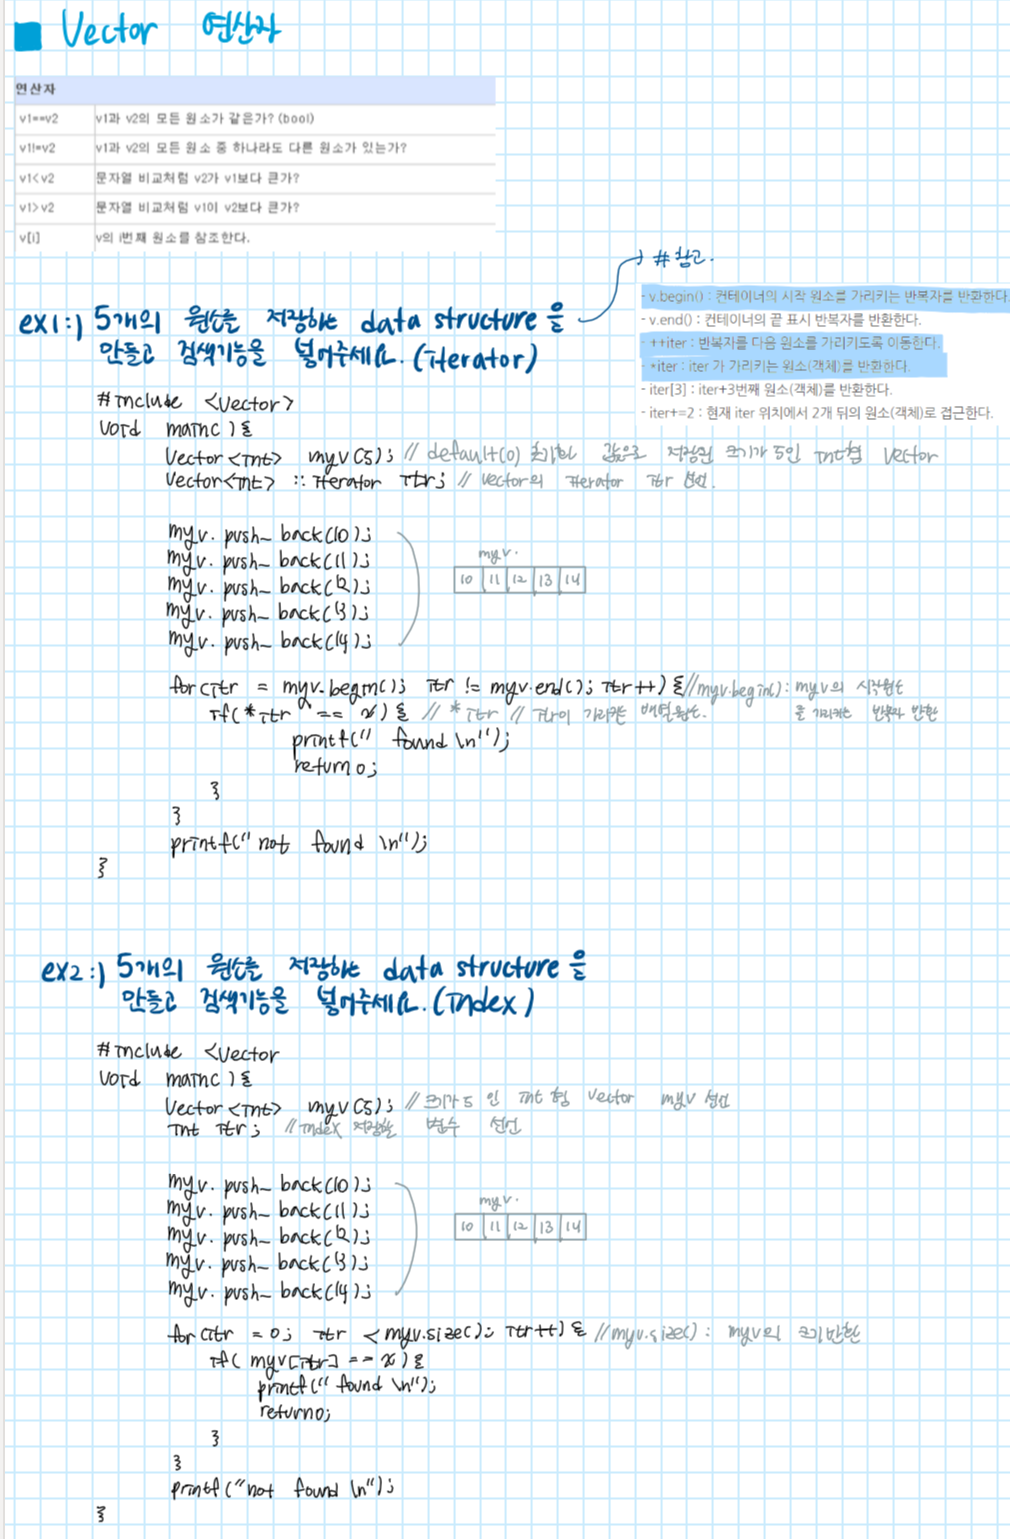 Vector 연산자
연산자
v1==v2 v1과 v2의 모든 원소가 같은가? (bool)
v1!=v2 v1과 v2의 모든 원소 중 하나라도 다른 원소가 있는가?
v1<v2 문자열 비교처럼 v2가 v1보다 큰가?
v1>v2 문자열 비교처럼 v1이 v2보다 큰가?
v[i] v의 i번째 원소를 참조한다.
#참고.
- v.begin() : 컨테이너의 시작 원소를 가리키는 반복자를 반환한다.
- v.end() : 컨테이너의 끝 표시 반복자를 반환한다.
- ++iter : 반복자를 다음 원소를 가리키도록 이동한다.
- *iter : iter 가 가리키는 원소(객체)를 반환한다.
- iter[3] : iter+3번째 원소(객체)를 반환한다.
- iter+=2 : 현재 iter 위치에서 2개 뒤의 원소(객체)로 접근한다.
ex1:) 5개의 원소를 저장하는 data structure을
만들고 검색기능을 넣어주세요. (iterator)
#include <Vector>
Void main( ) {
Vector <Int> myv(5); // default(0) 초기화 값으로 저장된 크기가 5인 Int형 Vector
Vector<Int> :: Iterator Itr; // Vector의 Iterator Itr 선언.
myv. push_ back(10);
myv. push_ back(11);
myv. push_ back(12);
myv. push_ back(13);
myv. push_ back(14);
myv.
10 11 12 13 14
for(Itr = myv.begin(); Itr != myv.end(); Itr++) { //myv.begin(): myv의 시작원소
를 가리키는 반복자 반환
If(*Itr == x) { // *Itr // Itr이 가리키는 배열원소.
printf(" found \n");
return 0;
}
}
printf("not found \n");
}
ex2:) 5개의 원소를 저장하는 data structure을
만들고 검색기능을 넣어주세요. (Index)
#Include <Vector
Void main( ) {
Vector <Int> myv(5); // 크기가 5 인 Int 형 Vector myv 선언
Int Itr; //Index 저장하는 변수 선언
myv. push_ back(10);
myv. push_ back(11);
myv. push_ back(12);
myv. push_ back(13);
myv. push_ back(14);
myv.
10 11 12 13 14
for(Itr = 0; Itr < myv.size(); Itr++) { //myv.size() : myv의 크기반환
If( myv[Itr] == x) {
printf(" found \n");
return 0;
}
}
printf("not found \n");
}